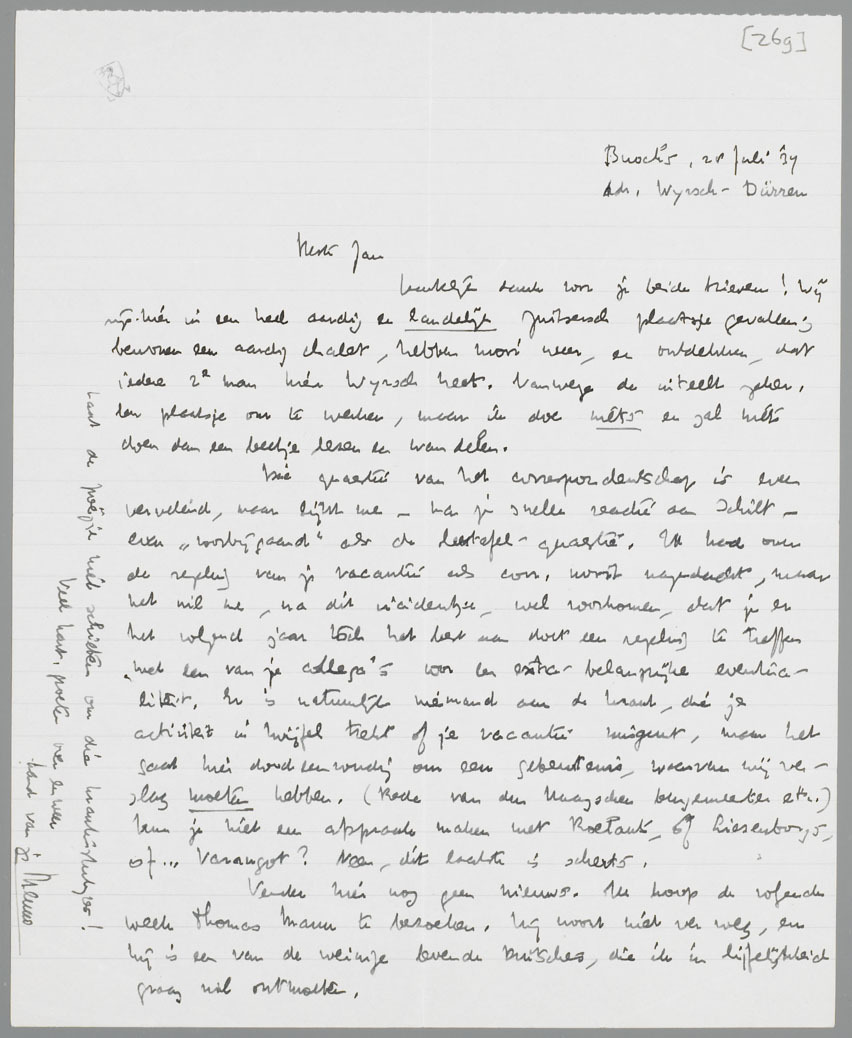 [269]
Buochs, 28 Juli '34
Adr. Wyrsch-Dürren
Beste Jan
hartelijk dank voor je beide brieven! Wij
zijn hier in een heel aardig en landelijk Zwitsersch plaatsje gevallen,
bewonen een aardig chalet, hebben mooi weer, en ontdekken, dat
iedere 2e man hier Wyrsch heet. Vanwege de inteelt zeker.
Een plaatsje om te werken, maar ik doe niets en zal niets
doen dan een beetje lezen en wandelen.
Die quaestie van het correspondentschap is even
vervelend, maar lijkt me – na je snelle reactie aan Schilt –
even „voorbijgaand" als de leestafel-quaestie. Ik had over
de regeling van je vacantie als corr. nooit nagedacht, maar
het wil me, na dit incidentje, wel voorkomen, dat je er
het volgend jaar toch het best aan doet een regeling te treffen
met een van je collega's voor een extra-belangrijke eventua-
liteit. Er is natuurlijk niemand aan de krant, die je
activiteit in twijfel trekt of je vacantie misgunt, maar het
gaat hier doodeenvoudig om een gebeurtenis, waarvan wij ver-
slag moeten hebben. (Rede van den Haagschen burgemeester etc.)
Kun je niet een afspraak maken met Roelants, of Liesenborgs,
of... Varangot? Neen, dit laatste is scherts.
Verder hier nog geen nieuws. Ik hoop de volgende
week Thomas Mann te bezoeken. Hij woont niet ver weg, en
hij is een van de weinige levende Duitschers, die ik in lijfelijkheid
graag wil ontmoeten.
Laat de poëzie niet schieten om die
Veel hart. groeten van en een
hand van je Menno